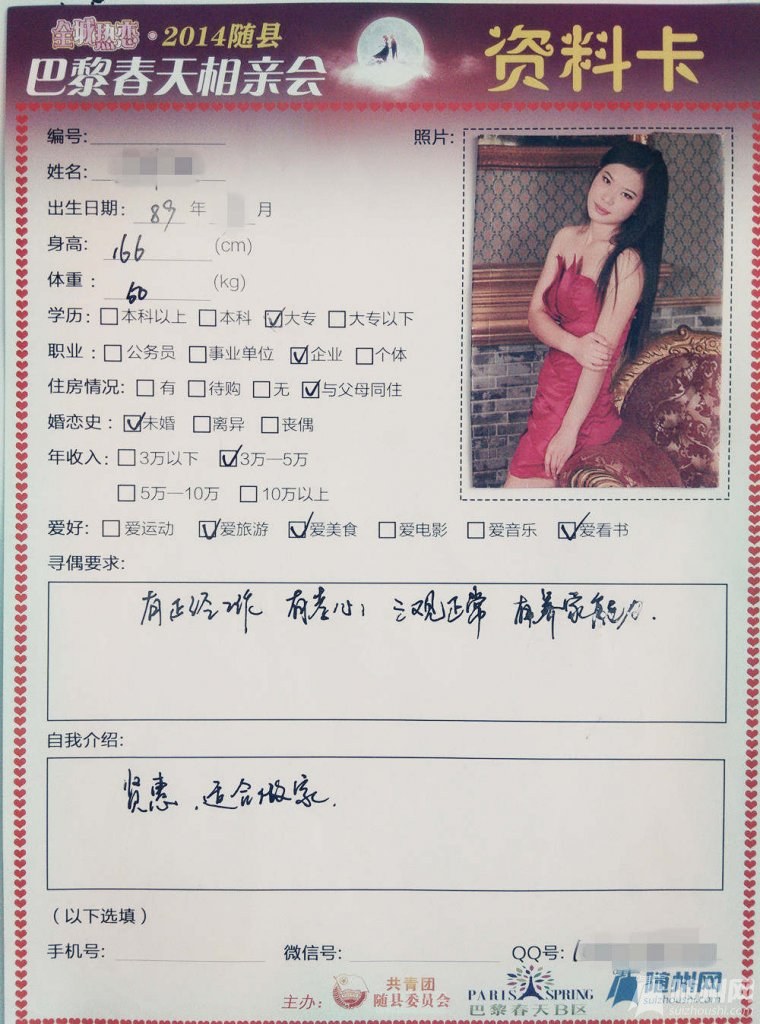 全城热恋·2014随县
巴黎春天相亲会
资料卡
编号:
照片:
姓名:
出生日期: 89 年 月
身高: 166 (cm)
体重: 50 (kg)
学历: 本科以上 本科 大专 大专以下
职业: 公务员 事业单位 企业 个体
住房情况: 有 待购 无 与父母同住
婚恋史: 未婚 离异 丧偶
年收入: 3万以下 3万—5万
5万—10万 10万以上
爱好: 爱运动 爱旅游 爱美食 爱电影 爱音乐 爱看书
寻偶要求:
有正经工作 有孝心; 三观正常 有养家能力.
自我介绍:
贤惠、适合做家.
(以下选填)
手机号: 微信号: QQ号: 1
主办: 共青团
随县委员会
PARIS SPRING
巴黎春天B区
随州网
suizhoushi.com